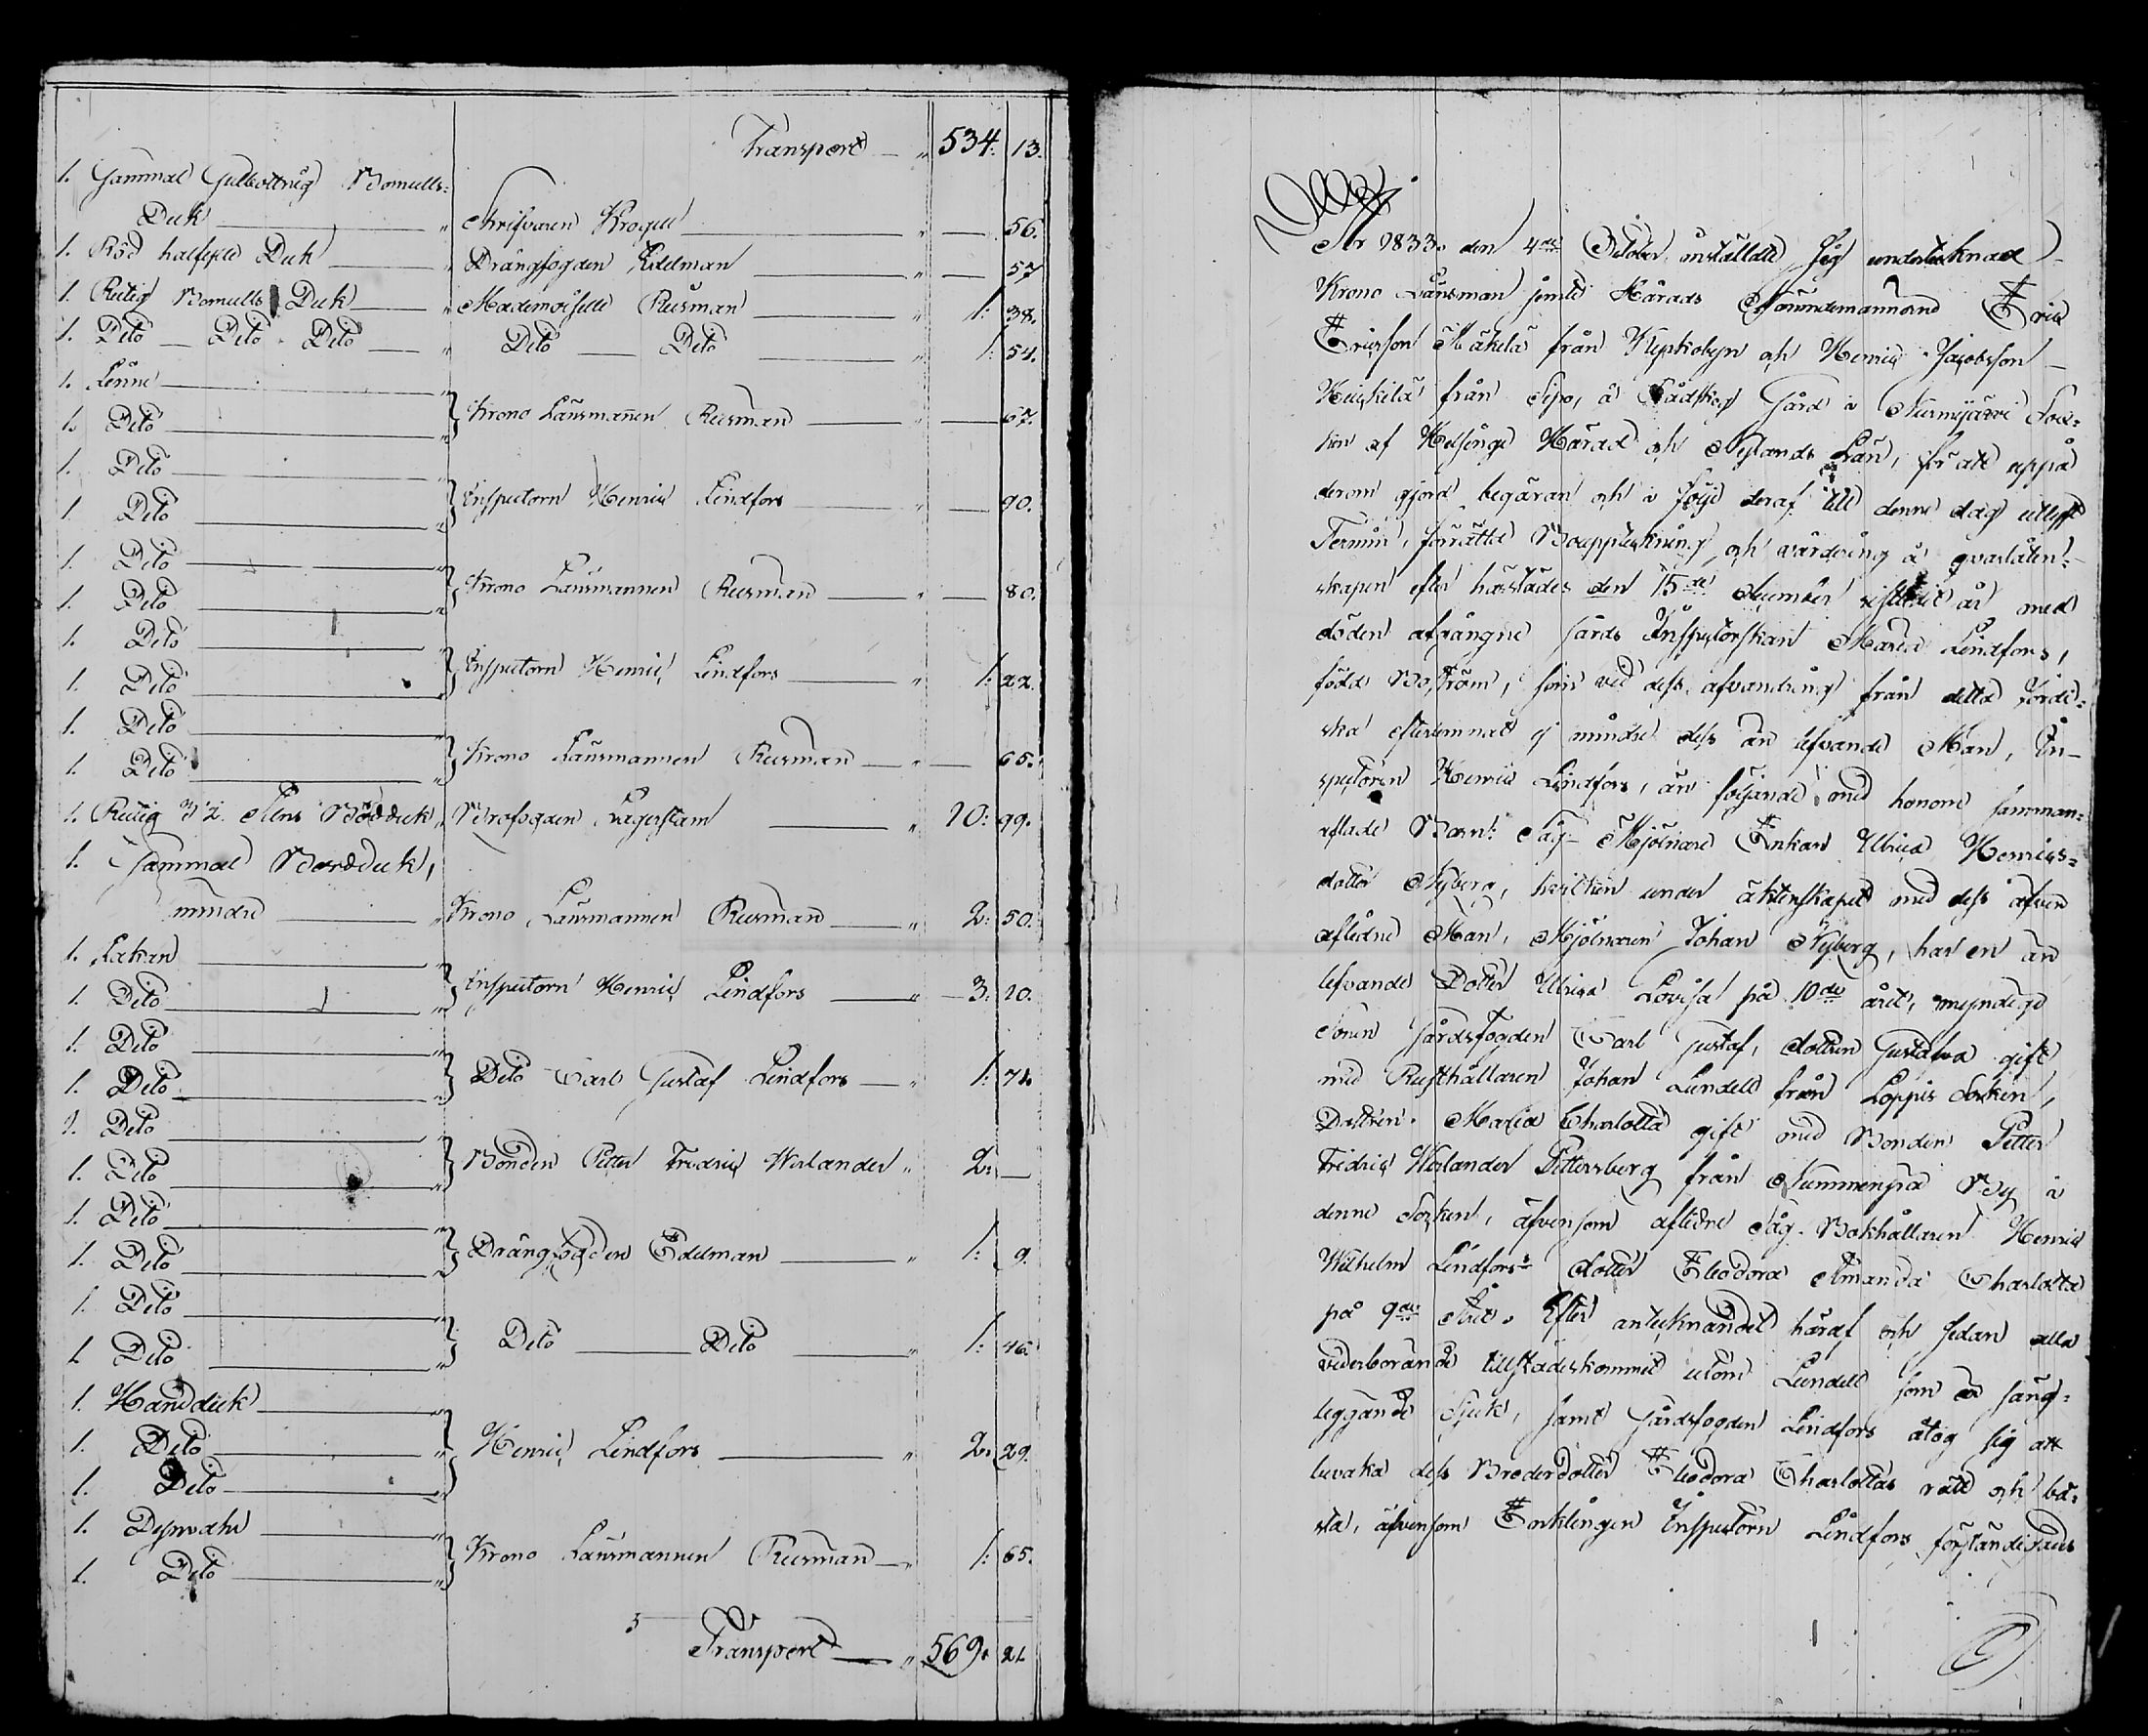 Transport — " 534. 13.
1. Gammal Gulbottnig Bomulls-
Duk " Skrifvaren Krogell " — 56.
1. Röd halfsiden Duk " Drängfogden Edelman " — 57
1. Rutig Bomulls Duk " Mademoiselle Rusman " 1: 38.
1. Dito Dito Dito " Dito Dito " 1: 54.
1. Linne "
1. Dito " } Krono Länsmannen Rusman " — 67.
1. Dito "
1. Dito " } Inspectorn Henric Lindfors " — 90.
1. Dito "
1. Dito " } Krono Länsmannen Rusman " — 80.
1. Dito "
1. Dito " } Inspectorn Henric Lindfors " 1: 22.
1. Dito "
1. Dito " } Krono Länsmannen Rusman " — 65.
1. Rutig Bordduk " Brofogden Lagerstam " 10: 99.
1. Gammal Bordduk,
mindre " Krono Länsmannen Rusman " 2: 50.
1. Lakan "
1. Dito " } Inspectorn Henric Lindfors " 3: 20.
1. Dito "
1. Dito " } Dito Carl Gustaf Lindfors " 1: 71.
1. Dito "
1. Dito " } Bonden Petter Fredric Werlander " 2: —
1. Dito "
1. Dito " } Drängfogden Edelman " 1: 9.
1. Dito "
1. Dito " } Dito Dito " 1: 46.
1. Handduk "
1. Dito " } Henric Lindfors " 2: 29.
1. Dito "
1. Dynvahr "
1. Dito " } Krono Länsmannen Rusman " 1: 65.
Transport " 569. 21
År 1833. den 4de October inställdte Jag undertecknad
Krono Länsman jemte Härads Nämndemännerne Eric
Ericsson Mäkelä från Klepkobyn och Henric Jacobsson
Heickilä från Sipo, å Rådskog Gård i Nurmijärvi Soc-
ken af Helsinge Härad och Nylands Län, för att uppå
derom gjord begäran och i följe deraf till denne dag utsatt
Termin, förrätta Bouppteckning och värdering å qvarlåten-
skapen efter härstädes den 15de December sistledit år med
döden afgångne Gårds Inspectorskan Maria Lindfors,
född Boström, som vid dess afvandring från detta Jordi-
ska efterlemnat ej mindre dess än lefvande Man, In-
spectoren Henric Lindfors, än följande med honom samman-
aflade Barn: Såg- Mjölnare Enkan Ulrica Henrics-
dotter Nyberg, hvilken under äktenskapet med dess äfven
aflidne Man, Mjölnaren Johan Nyberg, har en än
lefvande Dotter Ulrica Lovisa på 10de året, myndige
Sonen Gårdsfogden Carl Gustaf, dottren Gustafva gift
med Rusthållaren Johan Lundell från Loppis Socken,
Dottren Maria Charlotta gift med Bonden Petter
Fridric Werlander Pettersberg från Nummenpä By i
denne Socken, äfvensom aflidne Såg-Bokhållaren Henric
Wilhelm Lindfors's dotter Eleodora Amanda Charlotta
på 9de Året. Efter antecknandet häraf och sedan alla
vederborande tillstädeskommit utom Lundell som är säng-
liggande Sjuk, samt Gårdsfogden Lindfors åtog sig att
bevaka dess Broderdotter Eleodora Charlottas rätt och bä-
sta, äfvensom Enklingen Inspectorn Lindfors förständigades